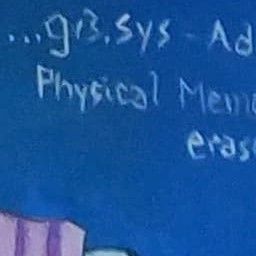 ...gr3.sys - Ad
Physical Mem
eras